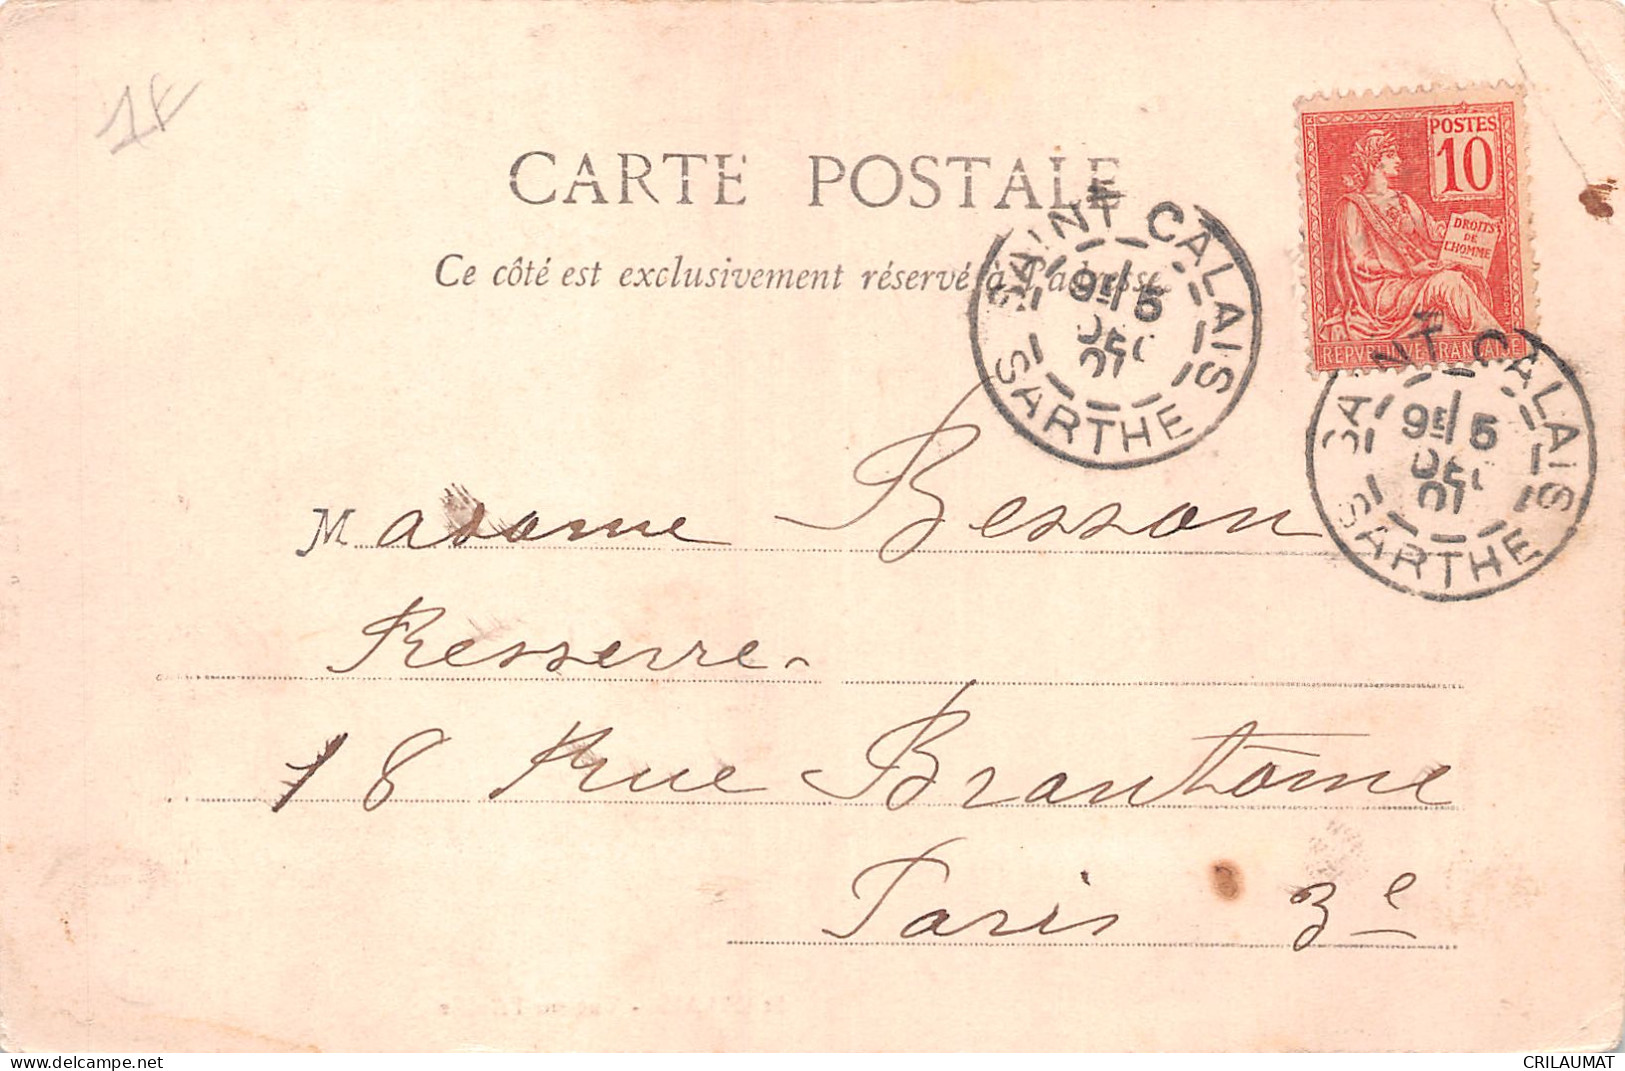 1F
CARTE POSTALE
Ce côté est exclusivement réservé à l'adresse
POSTES
10
DROITS
DE
L'HOMME
REPVBLIQVE FRANÇAISE
SAINT CALAIS
9E/5
DEC
01
SARTHE
SAINT CALAIS
9E/5
DEC
01
SARTHE
Madame Besson
Resserre
18 Rue Brantôme
Paris 3e
CRILAUMAT